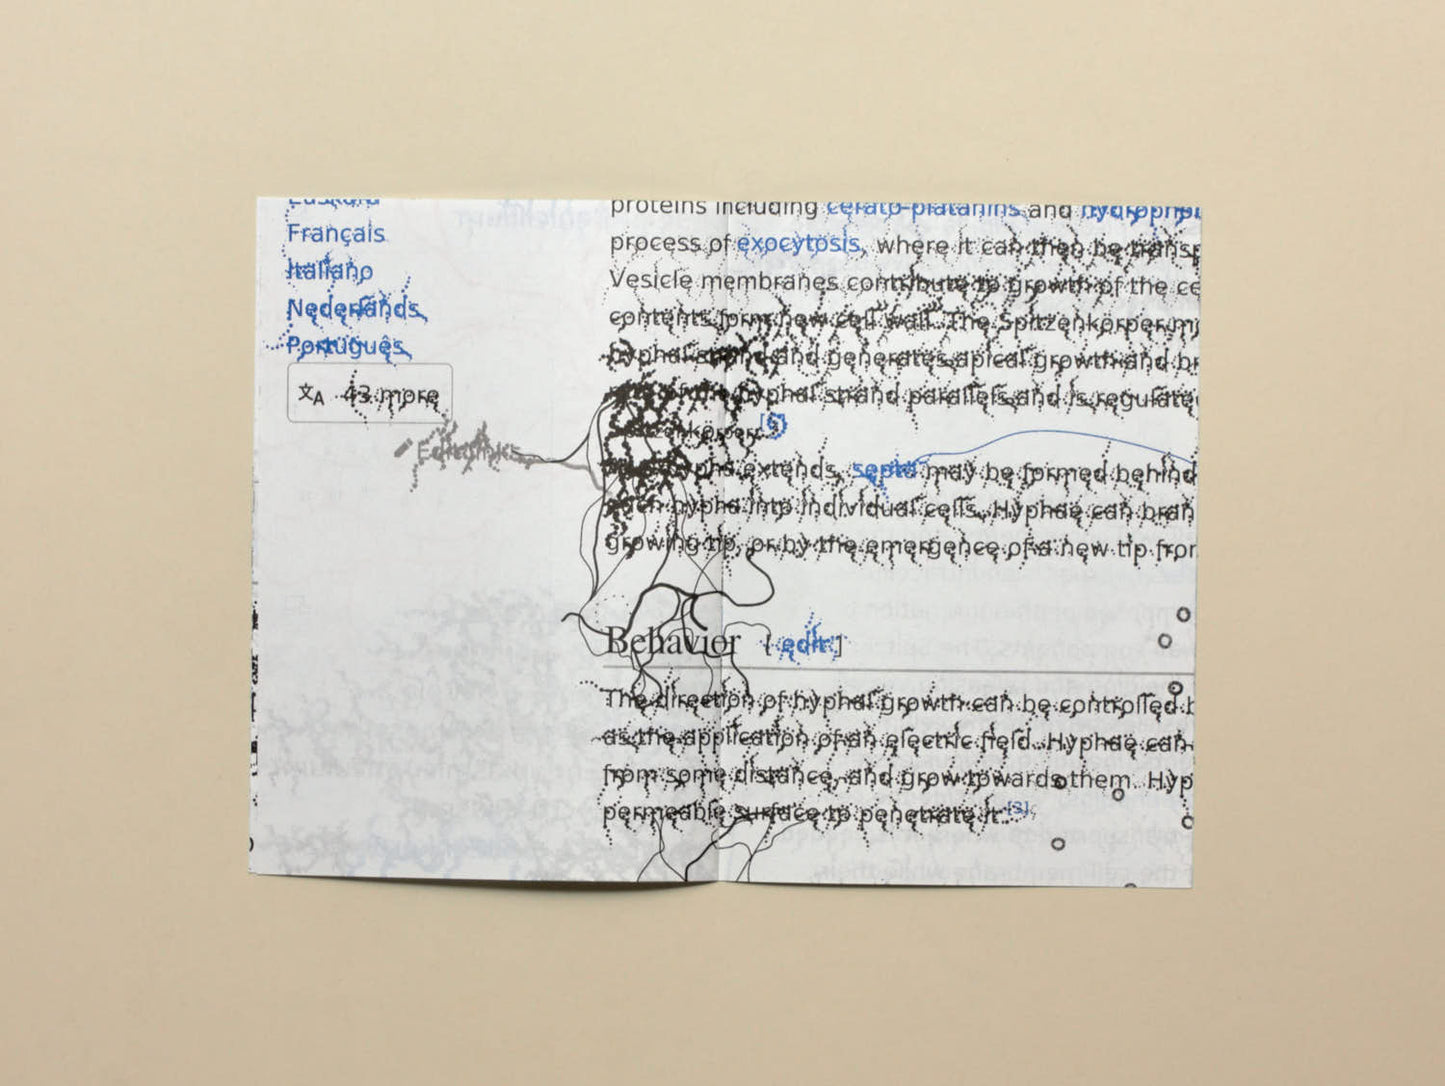 Euskara
Français
Italiano
Nederlands
Português
43 more
Edit links
proteins including cerato-platanins and
process of exocytosis, where it can then be transp
Vesicle membranes contribute to growth of the ce
contents form new cell wall. The Spitzenkörper m
hyphal strand and generates apical growth and br
of the hyphal strand parallels and is regulate
[6]
hypha extends, septa may be formed behind
each hypha into individual cells. Hyphae can bran
growing tip, or by the emergence of a new tip fror
Behavior [edit]
The direction of hyphal growth can be controlled b
as the application of an electric field. Hyphae can
from some distance, and grow towards them. Hyp
permeable surface to penetrate it.[3]